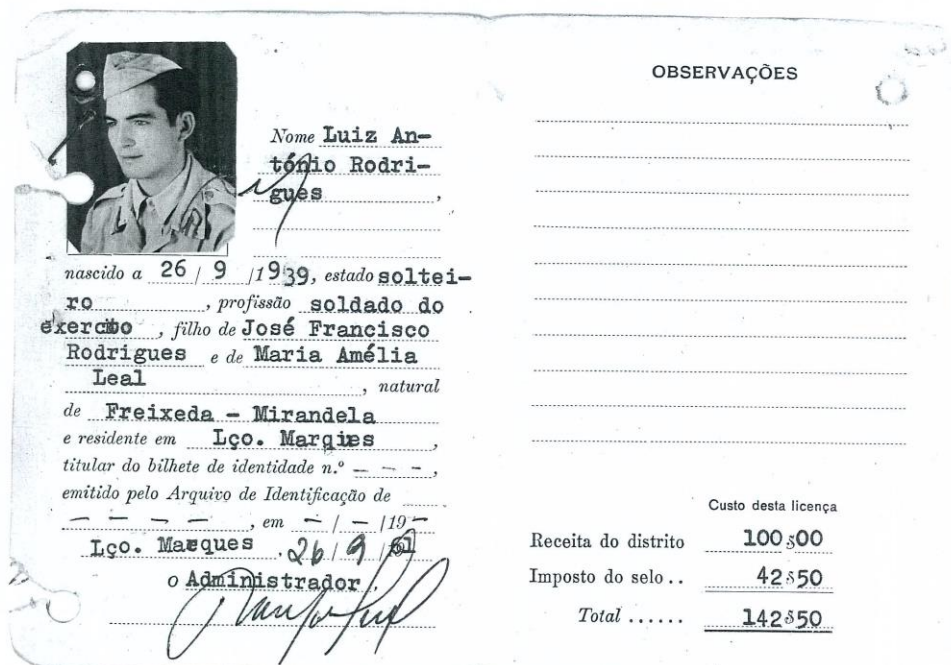 Nome Luiz An-
tónio Rodri-
gues,
nascido a 26 / 9 /1939, estado soltei-
ro, profissão soldado do
exercito, filho de José Francisco
Rodrigues e de Maria Amélia
Leal, natural
de Freixeda - Mirandela
e residente em Lço. Marqies,
titular do bilhete de identidade n.º - - -,
emitido pelo Arquivo de Identificação de
- - - -, em - / - /19-
Lço. Marques, 26 / 9 / 61
o Administrador
OBSERVAÇÕES
Custo desta licença
Receita do distrito 100$00
Imposto do selo.. 42$50
Total ...... 142$50